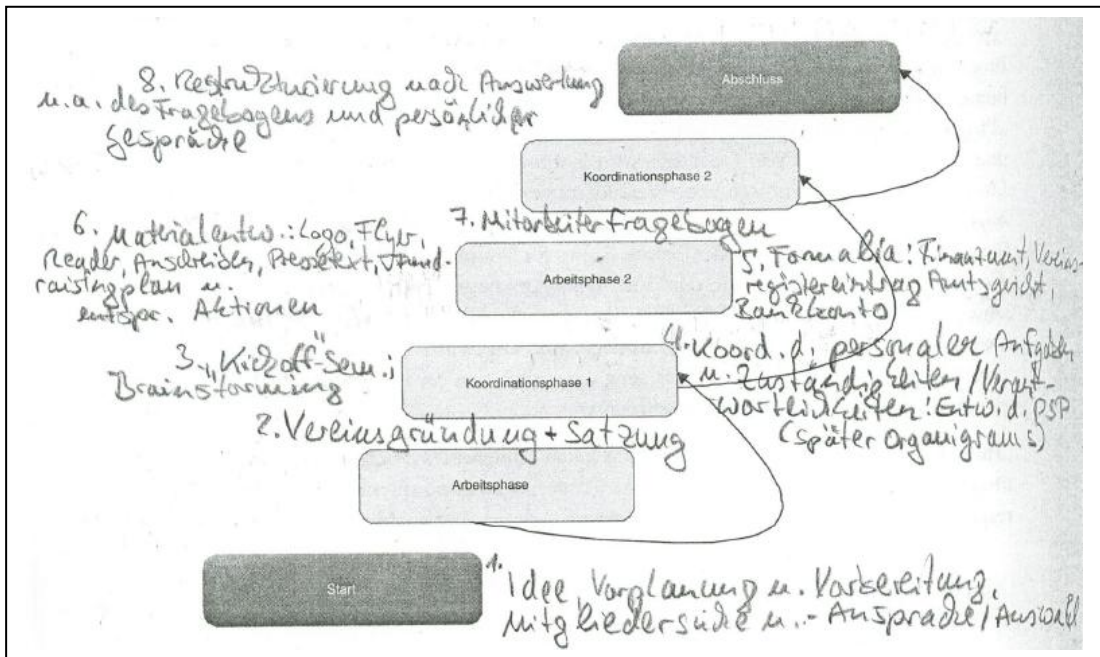 Abschluss
8. Restrukturierung nach Auswertung
u.a. des Fragebogens und persönlicher
Gespräche
Koordinationsphase 2
7. Mitarbeiterfragebogen
6. Materialentw.: Logo, Flyer,
Reader, Anschreiben, Pressetext, Fund-
raisingplan u.
entspr. Aktionen
Arbeitsphase 2
5. Formalia: Finanzamt, Vereins-
registereintrag Amtsgericht,
Bankkonto
3. "Kickoff"-Sem.:
Brainstorming
Koordinationsphase 1
4. Koord. d. personalen Aufgaben
u. Zuständigkeiten / Verant-
wortlichkeiten: Entw. d. PSP
(später Organigramms)
2. Vereinsgründung + Satzung
Arbeitsphase
Start
1.
Idee, Vorplanung u. Vorbereitung,
Mitgliedersuche u. - Ansprache / Auswahl